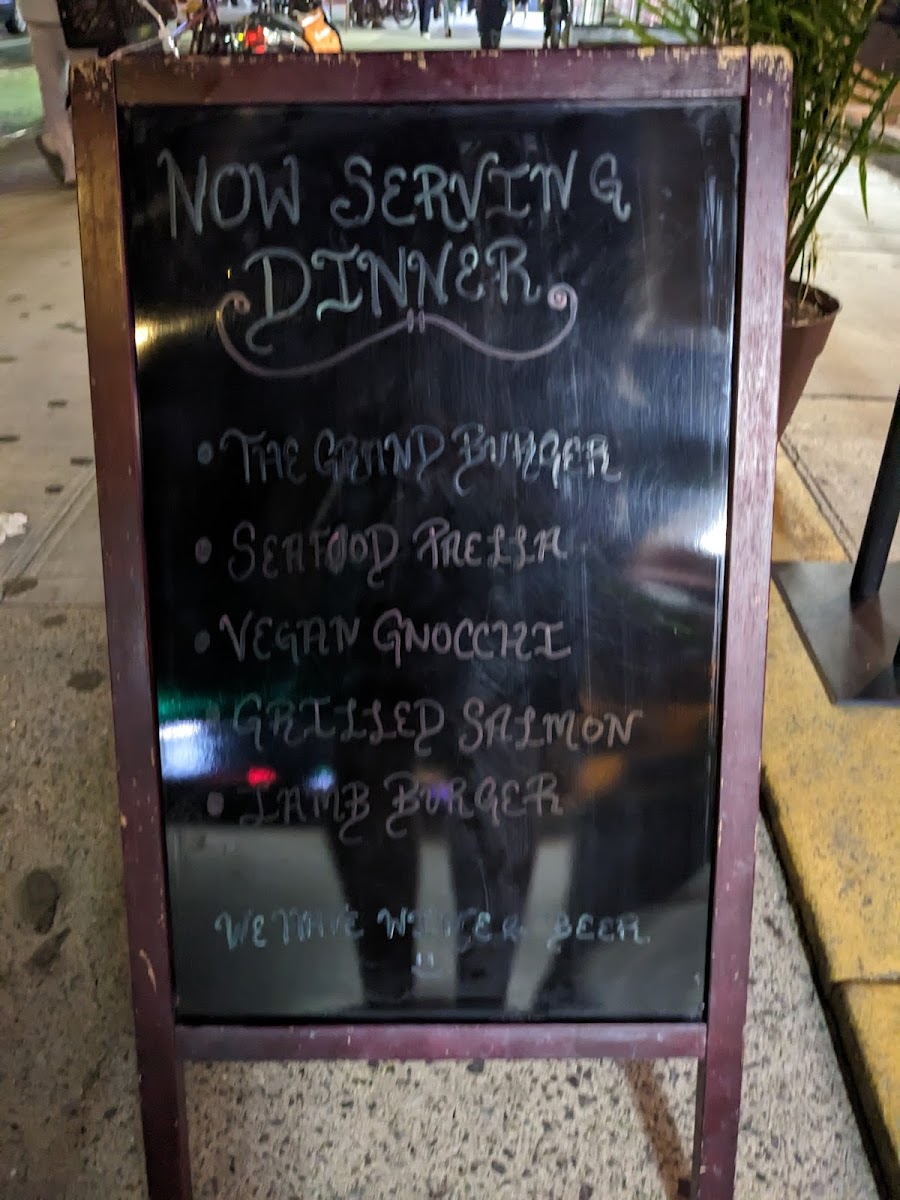 NOW SERVING
DINNER
• THE GRAND BURGER
• SEAFOOD PAELLA
• VEGAN GNOCCHI
• GRILLED SALMON
• LAMB BURGER
WE HAVE WINTER BEER